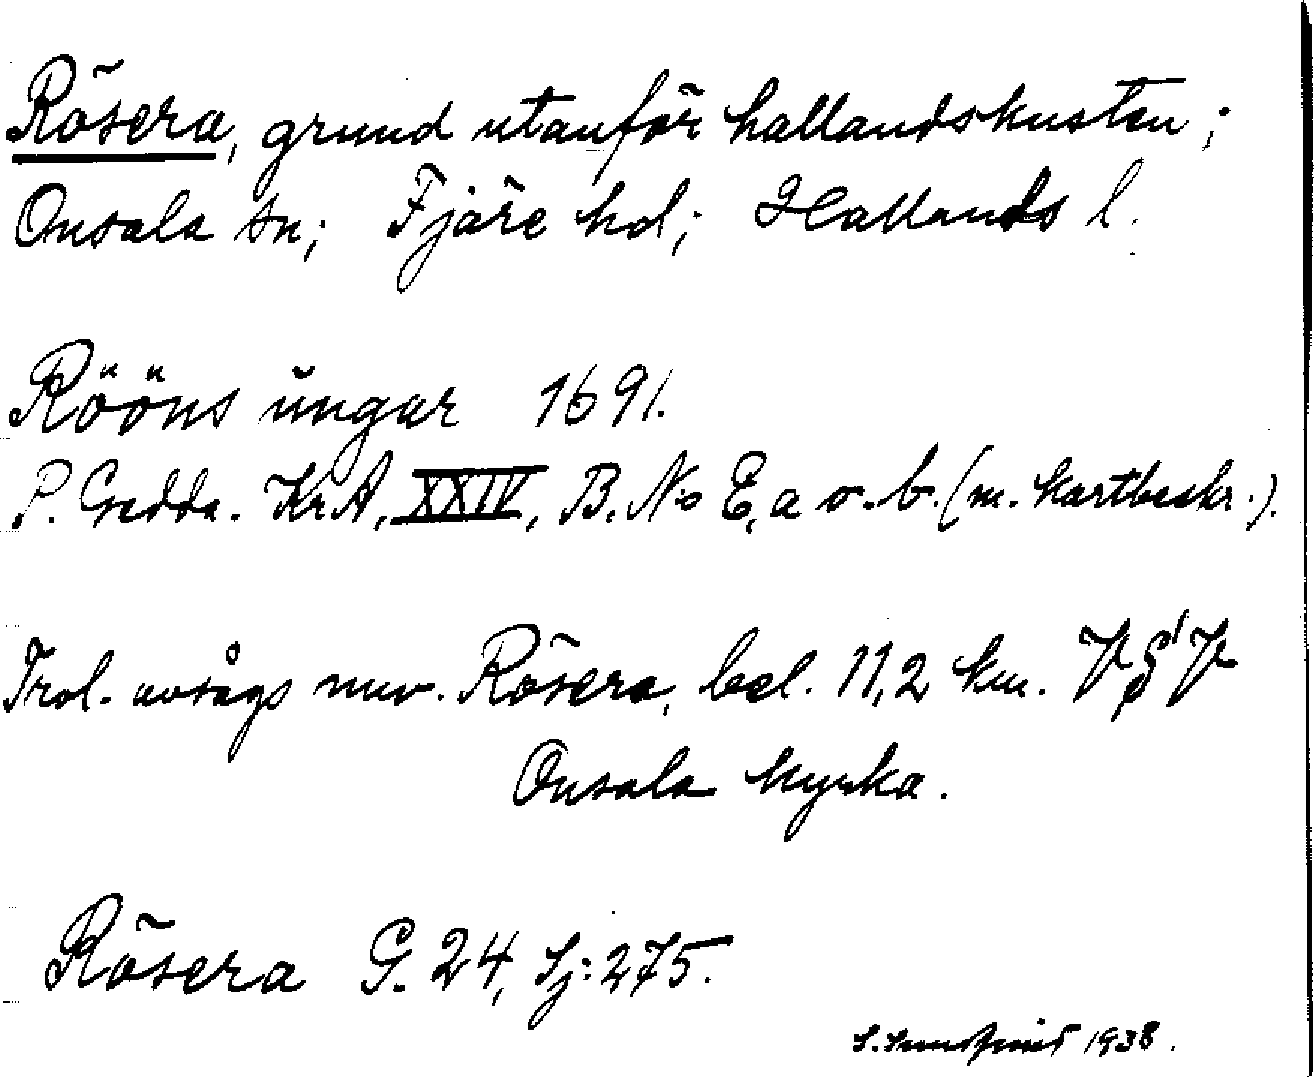 Rösera, grund utanför hallandskusten;
Onsala sn; Fjäre hd; Hallands l.
Rööns ungar 1691.
P. Gedda. Kr.A, XXIV, B. No E, a o. b. (m. kartbeskr.).
Trol. avsågs nuv. Rösera, bel. 11,2 km.
Onsala kyrka.
Rösera G. 24, Sj: 275.
1938.